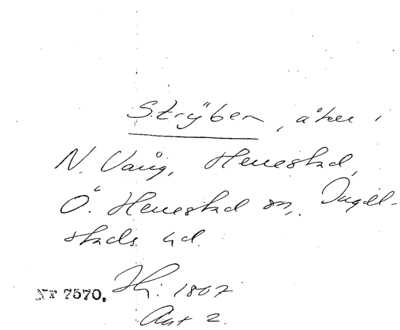 Strÿben, åker i
N. Vång, Henestad,
Ö. Henestad sn, Ingel-
stads hd.
Nr 7570. Hy: 1807
Akt 2.